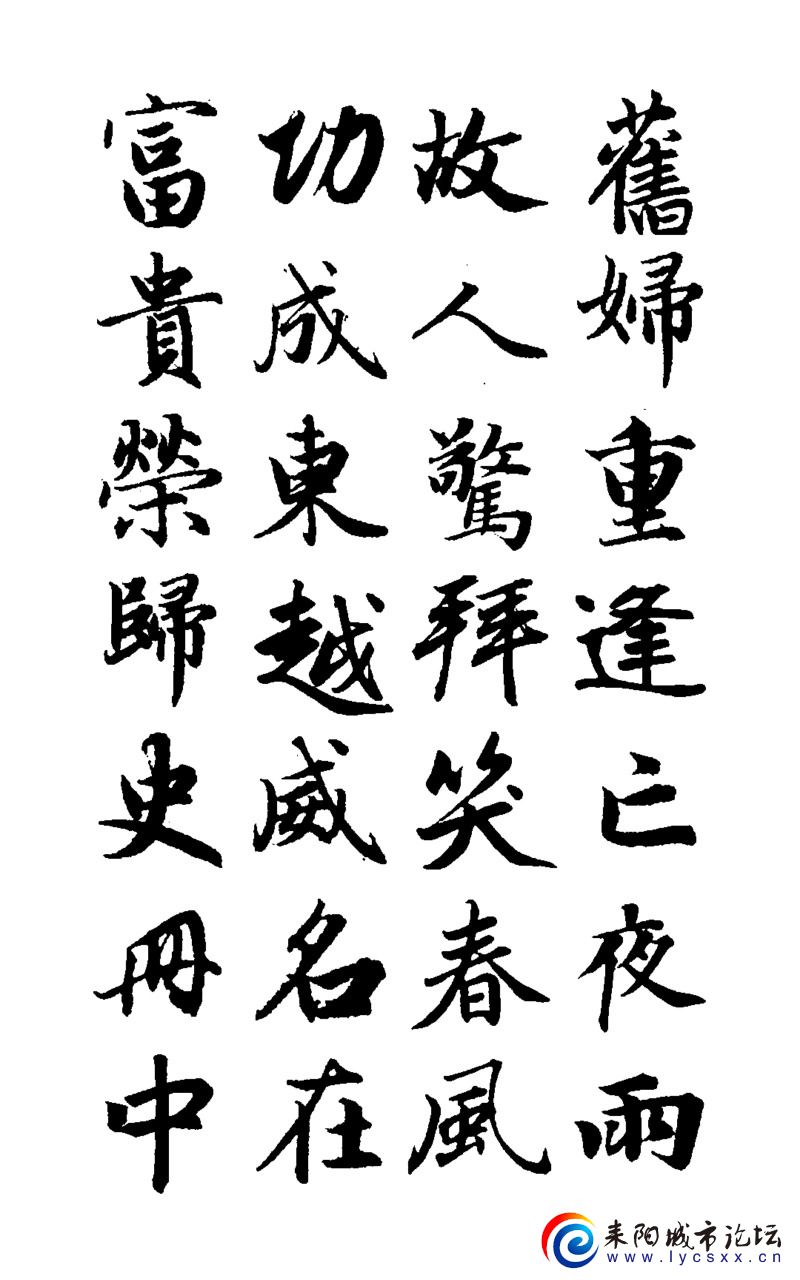 舊婦重逢亡夜雨
故人驚拜笑春風
功成東越威名在
富貴榮歸史冊中
耒阳城市论坛
www.lycsxx.cn